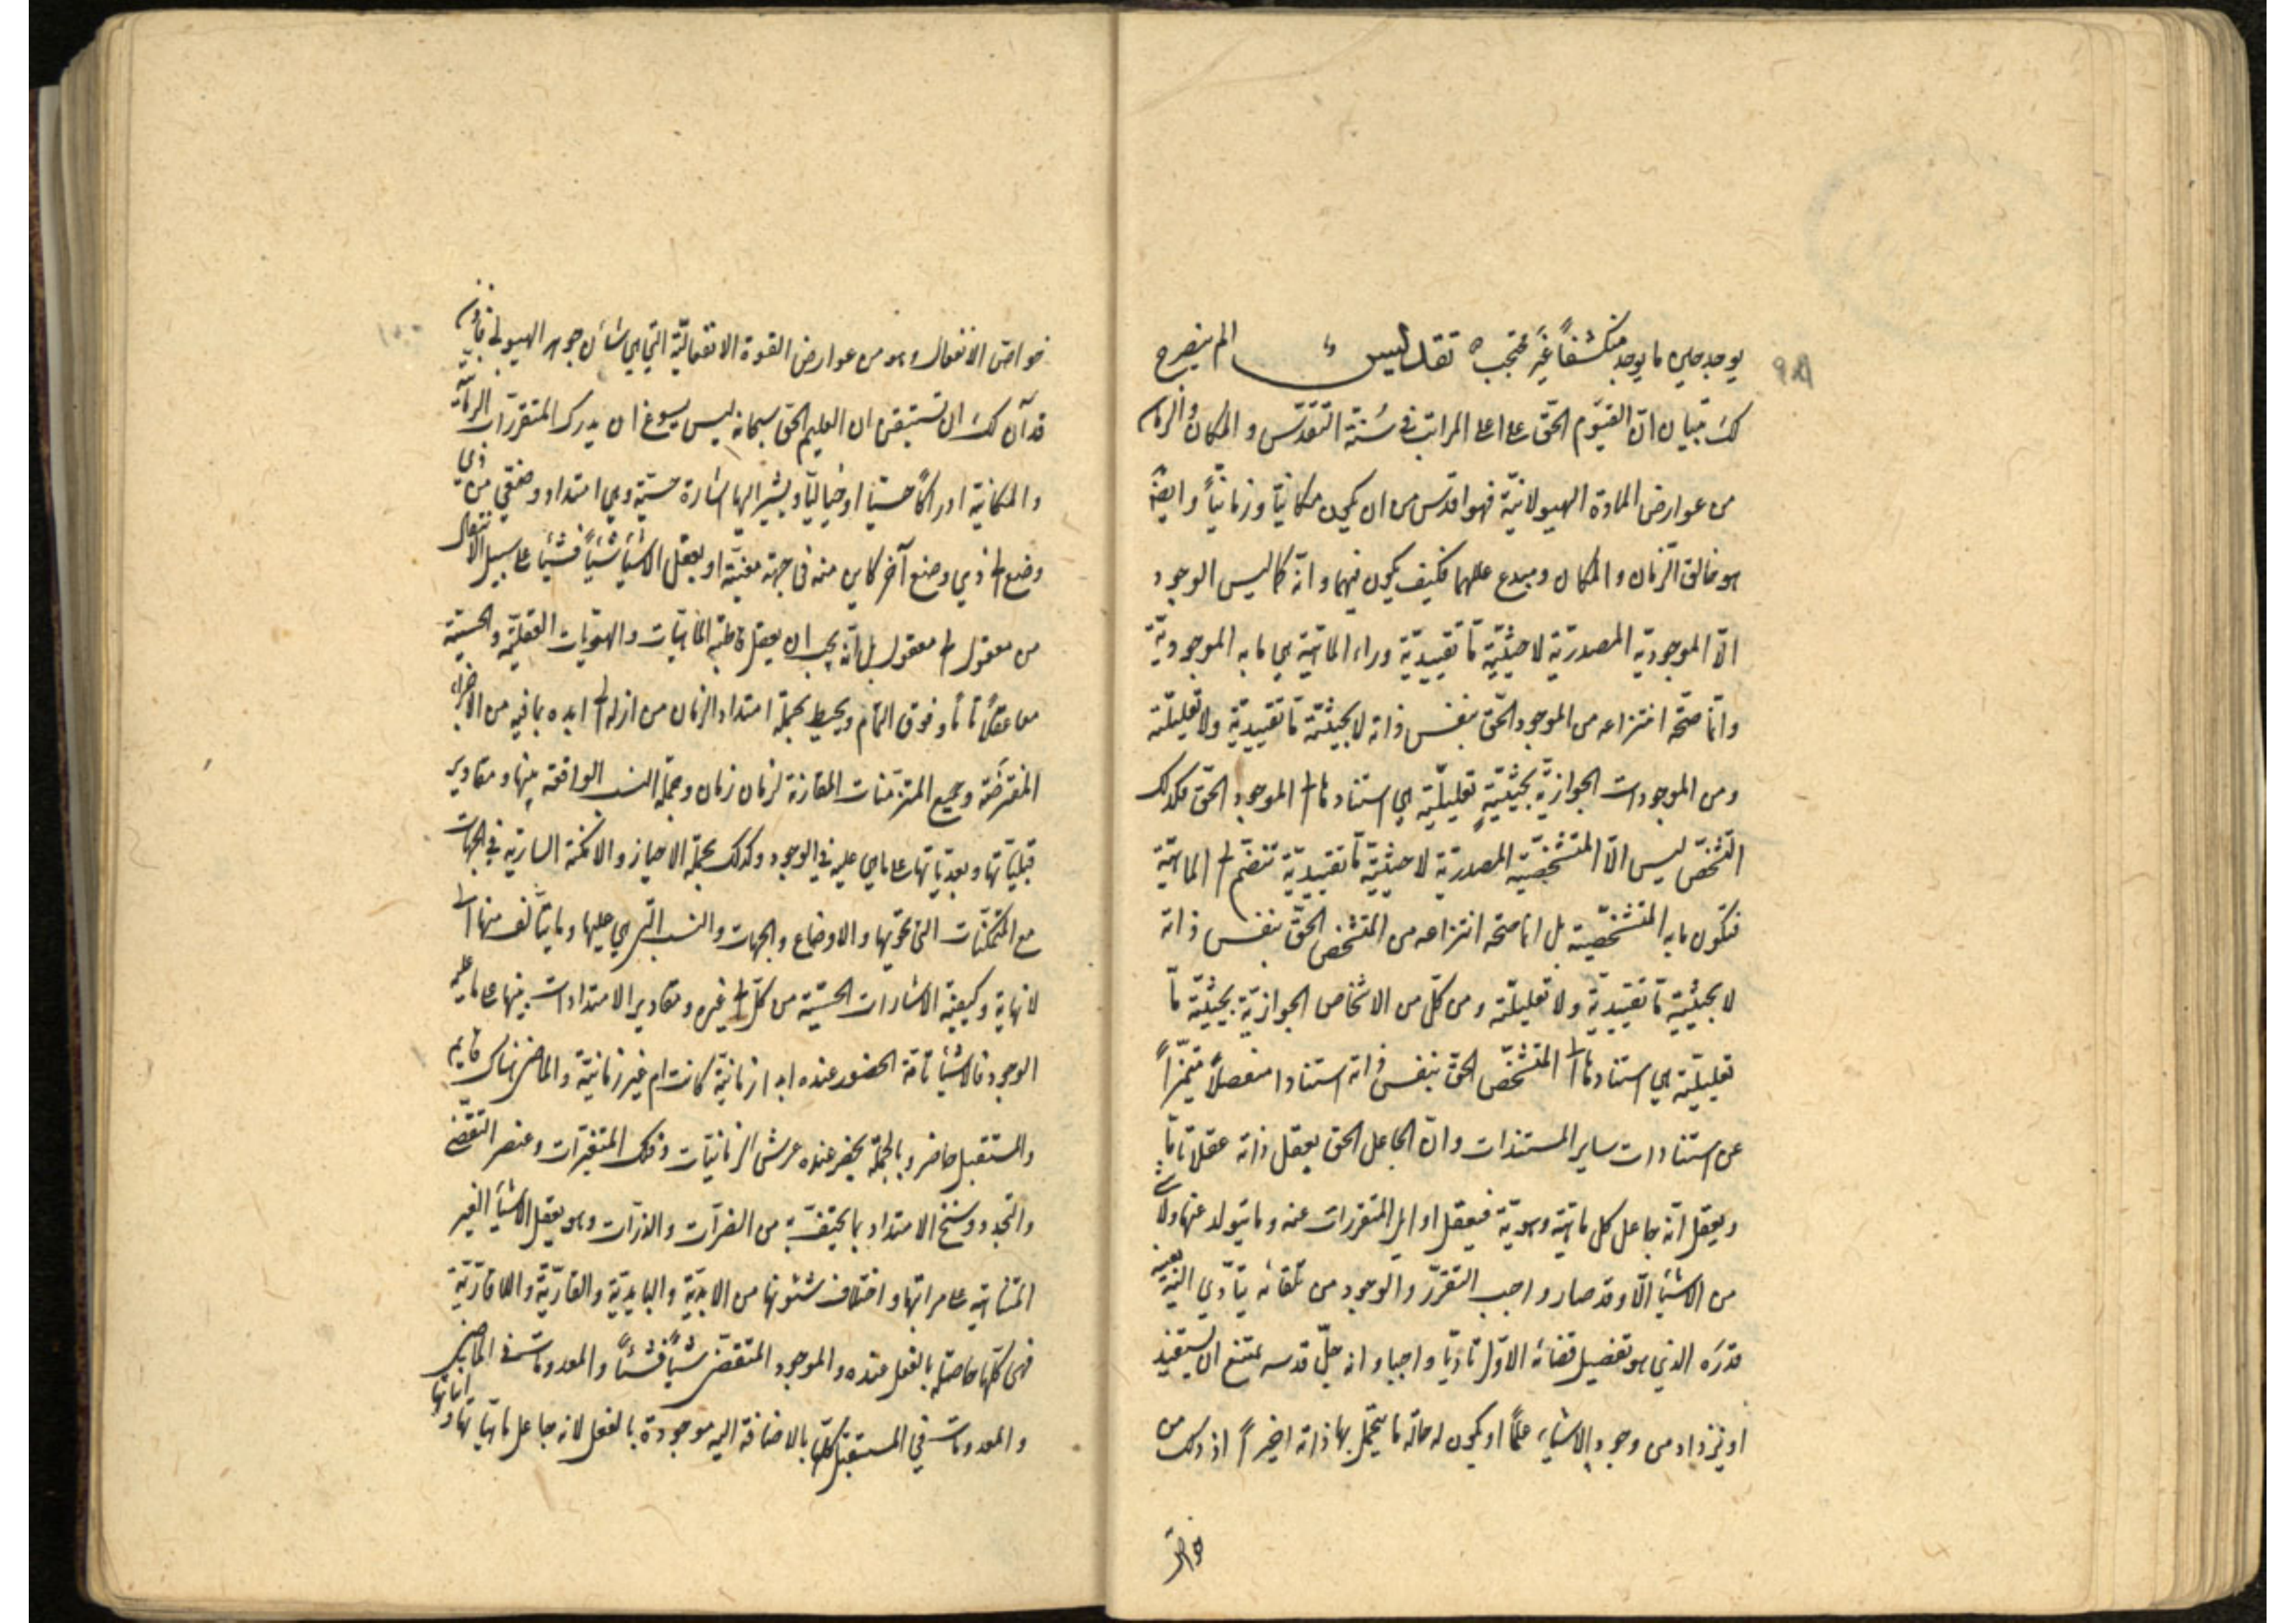 ٩٨
يوجد حين ما يوجد منكشفاً غير محتجب ٥ تقديس ء الم ينصرح
لك بتبيان انّ القيّوم الحقّ على اعلى المراتب في سُنّة التقدّس و المكان والزمان
من عوارض المادة الهيولانيّة فهو اقدس من ان يكون مكانيّاً و زمانيّاً وايضاً
هو خالق الزمان و المكان ومبدع عللهما فكيف يكون فيهما و انّه كما ليس الوجود
الّا الموجوديّة المصدريّة لا حيثيّة مّا تقييديّة وراء الماهيّة هي ما به الموجوديّة
وانّما صحّة انتزاعه من الموجود الحقّ بنفس ذاته لا بحيثيّة مّا تقييديّة ولا تعليليّة
ومن الموجودات الجوازيّة بحيثيّةٍ تعليليّة هي استنادها الى الموجود الحقّ فكذلك
التشخّص ليس الّا المتشخّصيّة المصدريّة لا حيثيّة مّا تقييديّة تنضمّ الى الماهيّة
فتكون ما به المتشخّصيّة بل انما صحة انتزاعه من المتشخص الحقّ بنفس ذاته
لا بحيثيّة مّا تقييديّة ولا تعليليّة ومن كلّ من الاشخاص الجوازيّة بحيثيّة مّا
تعليليّة هي استنادها الى المتشخّص الحقّ بنفس ذاته استنادا منفصلاً متميّزاً
عن استنادات ساير المستندات وانّ الجاعل الحق يعقل ذاته عقلا تامّا
ويعقل انّه جاعل كل ماهيّة وهويّة فيعقل اوايل المتقررات عنه وما يتولد عنها ولا شئ
من الاشياء الّا وقد صار واجب التقرّر والوجود من تلقائه يتأدّي اليه بعينه
قدَره الذي هو تفصيل قضائه الاوّل تادّيا واجبا و انه جلّ قدسه يمتنع ان يستفيد
او يزداد من وجود الاشياء علماً او يكون له حالة ما يتجمّل بها ذاته اخيراً اذ ذلك من
خواص
١٠٠
خواصّ الانفعال وهو من عوارض القوة الانفعاليّة التي هي شأن جوهر الهيولى فاذن
قد آن لك ان تستيقن ان العليم الحق سبحانه ليس يسوغ ان يدرك المتقرّرات الزمانيّة
والمكانية ادراكاً حسّيّا او خياليّا و يشير اليها اشارة حسّيّة وهي امتداد وضعي من ذي
وضع الى ذي وضع آخر كاين منه في جهة معيّنة او يعقل الاشياء شيئاً فشيئا على سبيل الانتقال
من معقول الى معقول بل انّه يجب ان يعقل قاطبة الماهيّات و الهويّات العقليّة و الحسيّة
معا عقلاً تامّاً وفوق التمام ويحيط بجملة امتداد الزمان من ازله الى ابده بما فيه من الاجزاء
المفترضة وجميع المتزمّنات المقارنة لزمان زمان وجملة النسب الواقعة بينها و مقادير
قبليّاتها وبعديّاتها على ما هي عليه في الوجود وكذلك بجملة الاحياز والامكنة السارية في الجهات
مع المتمكّنات التي تحويها و الاوضاع و الجهات و النسب التي هي عليها وما يتألف منها الى
لا نهاية و كيفية الاشارات الحسّيّة من كلّ الى غيره و مقادير الامتدادات بينها على ما عليه
الوجود فالاشياء تامّة الحضور عنده ابدا زمانيّة كانت ام غير زمانيّة و الماضي هناك قايم
والمستقبل حاضر و بالجملة يحضر عنده عرش الزمانيّات وفلك المتغيّرات وعنصر التقضّي
والتجدد وسنخ الامتداد بما يحتفّ به من الضرّات و الذرّات وهو يعقل الاشياء الغير
المتناهية على مراتبها و اختلاف شئونها من الابديّة و البايديّة و القارّيّة و اللاقارّيّة
فهى كلّها حاصلة بالفعل عنده و الموجود المتقضّي شيئاً فشيئاً و المعدومات في الماضي
و المعدومات في المستقبل كلّها بالاضافة اليه موجودة بالفعل لانه جاعل ماهيّاتها و انّيّاتها